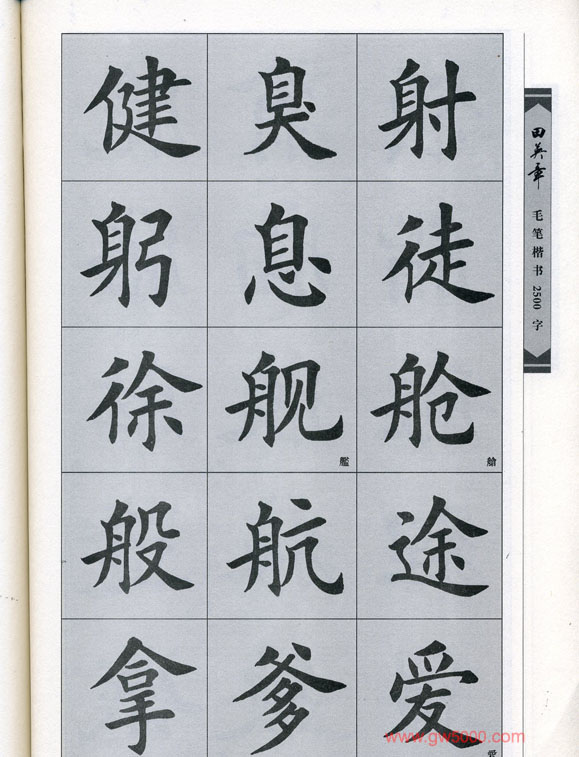 健 臭 射
躬 息 徒
徐 舰 舱
艦 艙
般 航 途
拿 爹 爱
愛
田英章
毛笔楷书2500字
www.gw5000.com